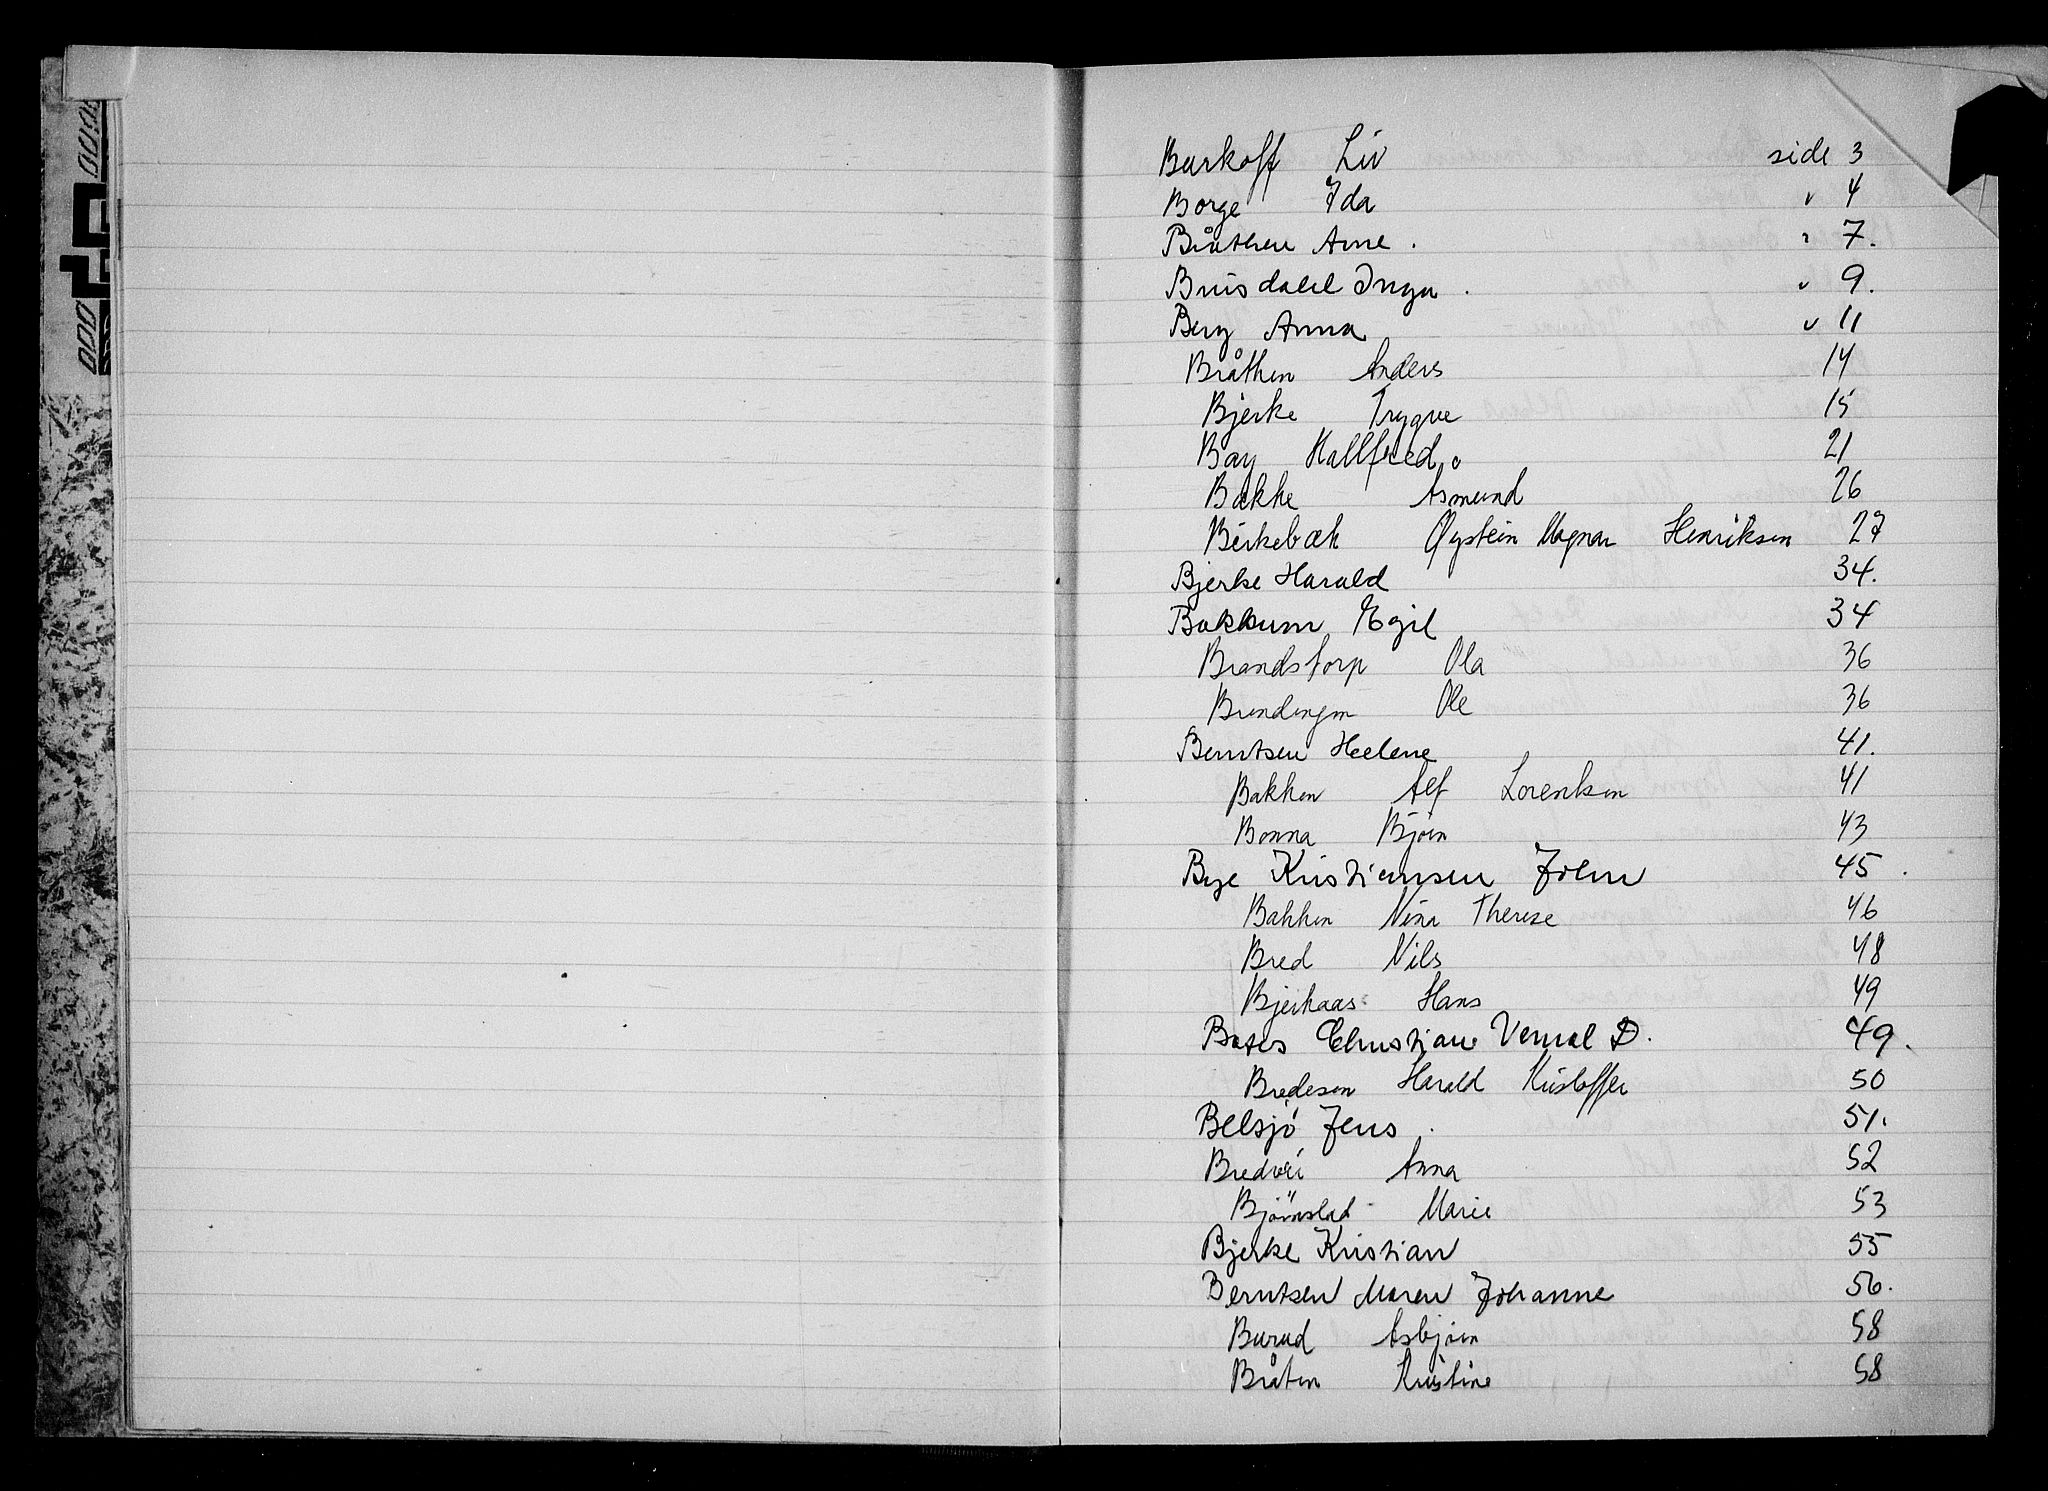 Burkoff Liv side 3
Borge Ida " 4
Bråthen Arne . " 7.
Bruisdalel Inga . " 9.
Berg Anna " 11
Bråthen Anders 14
Bjerke Trygve 15
Bay Hallfred. 21
Bakke Asmund 26
Birkebæk Øystein Magnar Henriksen 27
Bjerke Harald 34.
Bakkum Egil 34
Brandstorp Ola 36
Ole 36
Berntsen Heelene 41.
Bakken Alf Lorentsen 41
Bonna Bjørn 43
Bye Kristiansen John 45.
Bakken Nina Therese 46
Bred Nils 48
Bjerkaas Hans 49
Bates Christiane Vernal D. 49.
Bredesen Harald Kristoffer 50
Belsjö Jens . 51.
Bredvei Anna 52
Bjørnstad Marie 53
Bjerke Kristian 55
Berntsen Maren Johanne 56.
Burud Asbjørn 58
Bråten Kristine 58